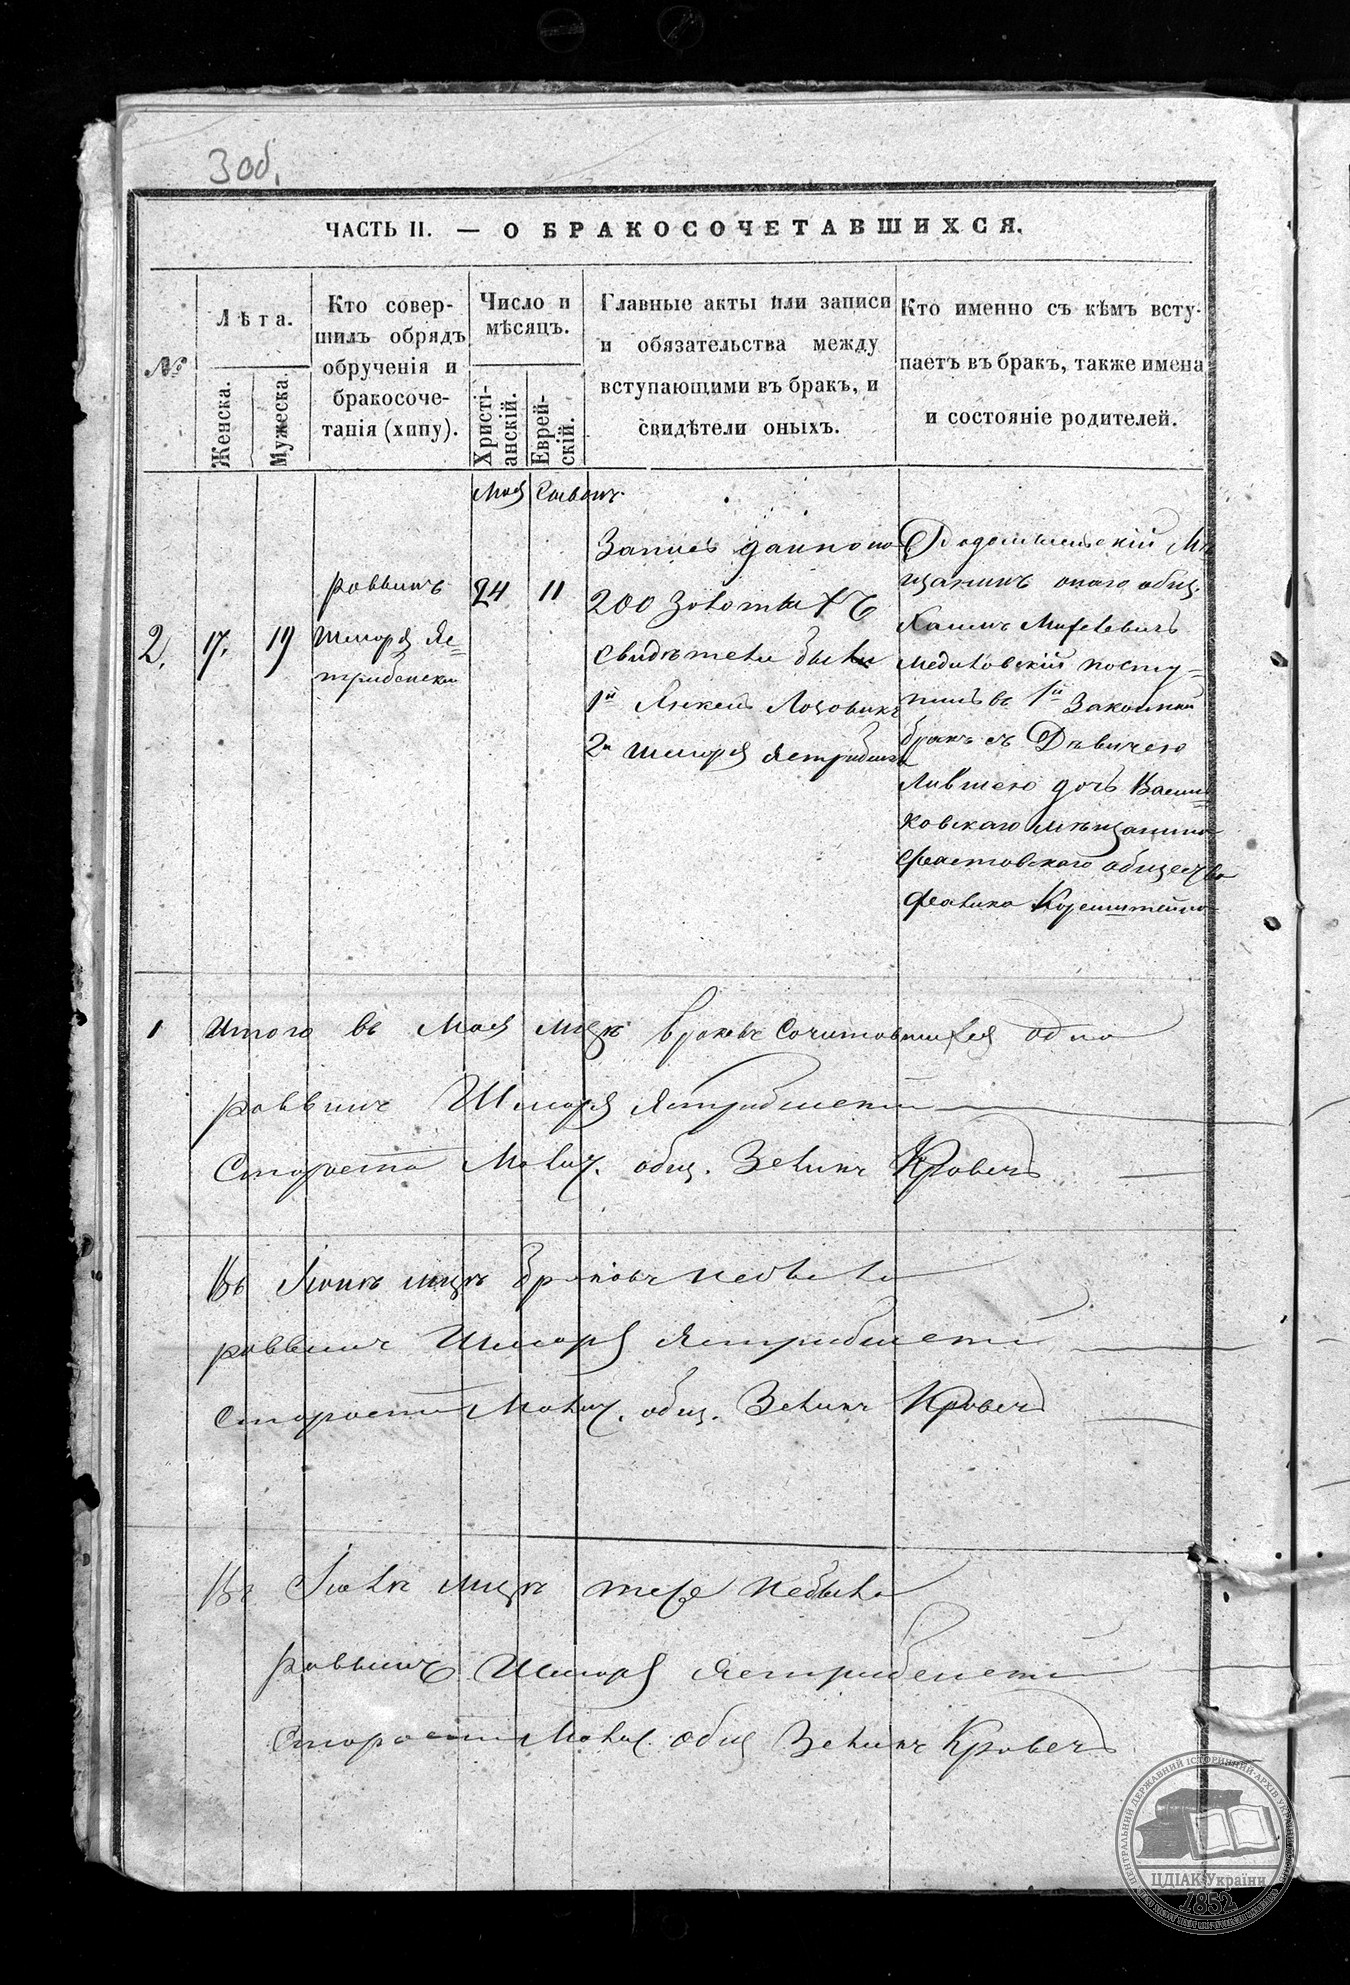 3 об.
ЧАСТЬ II. — О БРАКОСОЧЕТАВШИХСЯ.
№
Лѣта.
Женска.
Мужеска.
Кто совер-
шилъ обрядъ
обрученія и
бракосоче-
танія (хипу).
Число и
мѣсяцъ.
Христі-
анскій.
Еврей-
скій.
Главные акты или записи
и обязательства между
вступающими въ бракъ, и
свидѣтели оныхъ.
Кто именно съ кѣмъ всту-
паетъ въ бракъ, также имена
и состояніе родителей.
Мая Сыванъ
2.
17.
19
раввинъ
Шморя Яс=
трибенски
24
11
Запись данпо на
200 Золоты
свидѣтели были
1й Янкель Лозовикъ
2й Шморя
Мѣ
щанинъ онаго общ.
Хаимъ
Медиковский посту-
пилъ въ 1й Законный
бракъ съ Дѣвичею
дочь Василь=
ковскаго мѣщанина
Фастовскаго общества
Корнштейна
1 Итого въ Мая мцѣ браковъ Сочитовшихся одно
раввинъ Шморя Ястрибенски
Староста общ. Зеликъ Кравецъ
Въ Iюнѣ мцѣ браковъ небыло
раввинъ Шморя Ястрибенски
Староста общ. Зеликъ Кравецъ
Въ Iюлѣ мцѣ тоже небыло
раввинъ Шморя Ястрибенски
Староста общ Зеликъ Кравецъ
ЦЕНТРАЛЬНИЙ ДЕРЖАВНИЙ ІСТОРИЧНИЙ АРХІВ УКРАЇНИ
ЦДІАК України
1852